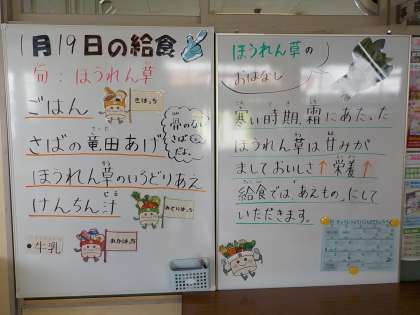 1月19日の給食
旬：ほうれん草
ごはん
きぱっち
さばの竜田あげ
骨のない
さばだよ。
ほうれん草のいろどりあえ
けんちん汁
みどりぱっち
・牛乳
あかぱっち
ほうれん草の
おはなし
寒い時期、霜にあたった
ほうれん草は甘みが
ましておいしさ↑栄養↑
給食では「あえもの」にして
いただきます。